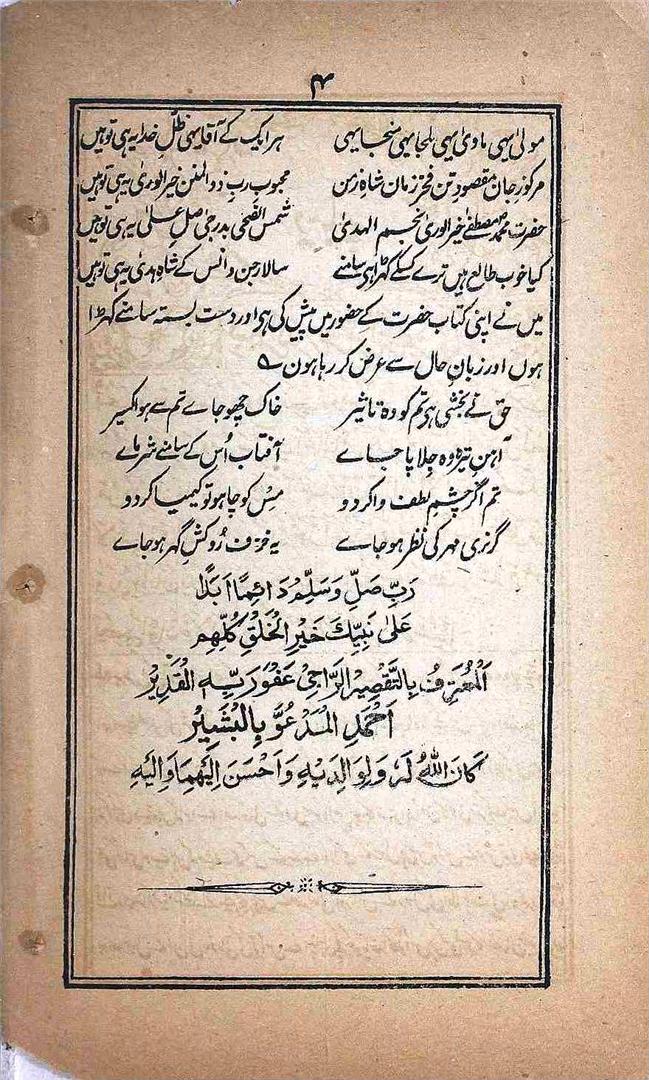 ۴
مولیٰ یہی ماویٰ یہی ملجا یہی منجا یہی ہر ایک کے آقا یہی ظلِّ خدا یہ ہی تو ہیں
مرکوز جان مقصود تن فخر زمان شاہ زمن محبوب رب ذوالمنن خیر الوریٰ یہ ہی تو ہیں
حضرت محمد مصطفےٰ خیر الوریٰ نجم الہدیٰ شمس الضحیٰ بدر دجیٰ صل علیٰ یہ ہی تو ہیں
کیا خوب طالع ہیں ترے کسکے کھڑا ہی سامنے سالار جن و انس کے شاہ ہدیٰ یہ ہی تو ہیں
میں نے اپنی کتاب حضرت کے حضور میں پیش کی ہی اور دست بستہ سامنے کھڑا
ہوں اور زبان حال سے عرض کر رہا ہون ۹
حق نے بخشی ہی تم کو وہ تاثیر خاک چھو جاے تم سے ہو اکسیر
آہن تیرہ وہ جِلا پا جاے آفتاب اُس کے سامنے شرماے
تم اگر چشمِ لطف وا کر دو مِس کو چاہو تو کیمیا کر دو
گر نری مہر کی نظر ہو جاے یہ خزف رُوکشِ گہر ہو جاے
رَبِّ صَلِّ وَسَلِّمْ دَائِمًا اَبَدًا
عَلیٰ نَبِیِّكَ خَیْرِ الْخَلْقِ كُلِّهِمِ
اَلْمُعْتَرِفُ بِالتَّقْصِیْرِ الرَّاجِیْ عَفْوَ رَبِّهِ الْقَدِیْرِ
اَحْمَدِ الْمَدْعُوِّ بِالْبَشِیْرِ
كَانَ اللهُ لَهٗ وَلِوَالِدَیْهِ وَاَحْسَنَ اِلَیْهِمَا وَاِلَیْهِ